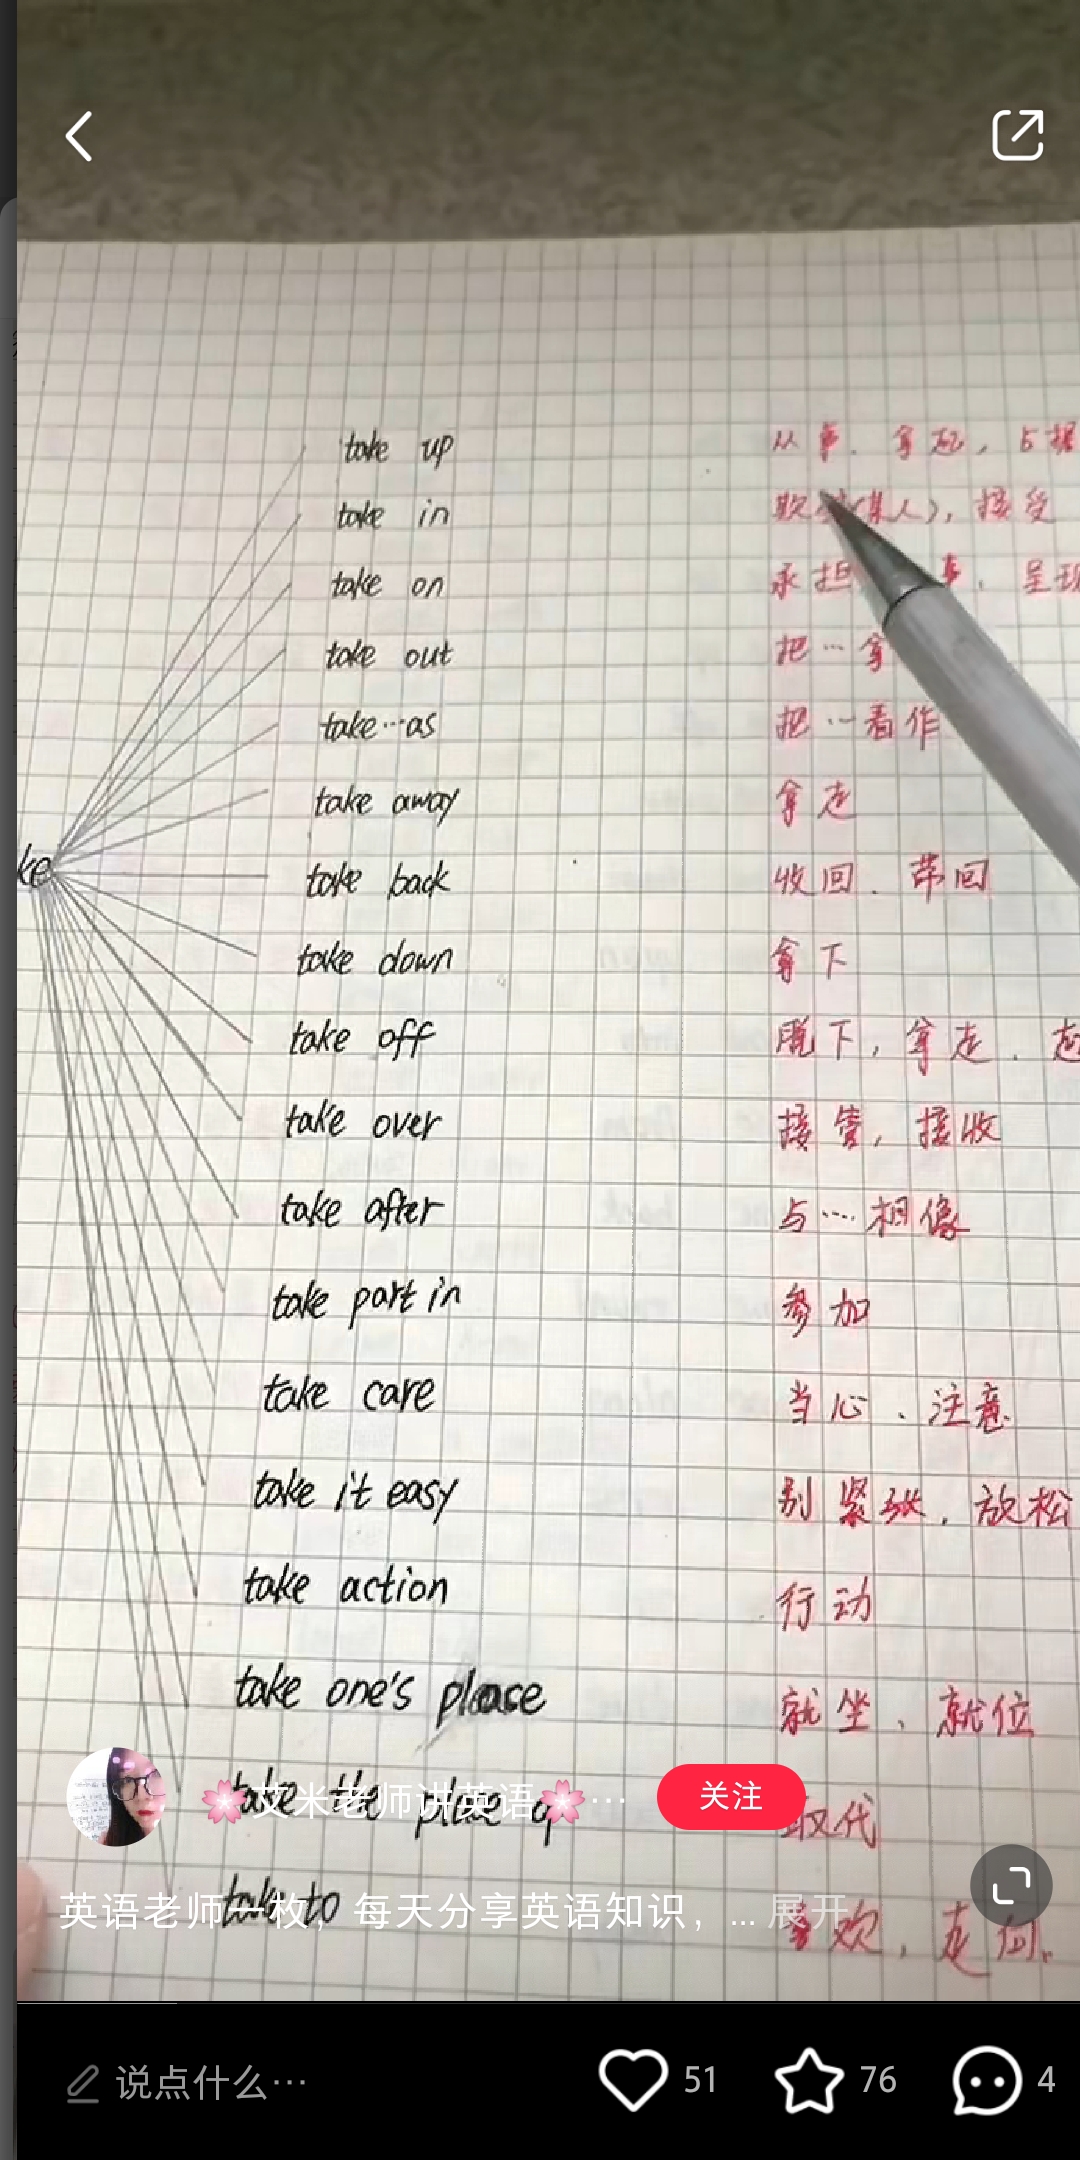 take up 从事、拿起，占据
take in 欺骗(某人)，接受
take on 承担 呈现
take out 把…拿
take…as 把…看作
take away 拿走
ke
take back 收回、带回
take down 拿下
take off 脱下，拿走、起
take over 接管，接收
take after 与…相像
take part in 参加
take care 当心、注意
take it easy 别紧张，放松
take action 行动
take one's place 就坐、就位
take the place of 取代
🌸艾米老师讲英语🌸… 关注
take to 喜欢，走向。
英语老师一枚，每天分享英语知识，... 展开
说点什么… 51 76 4